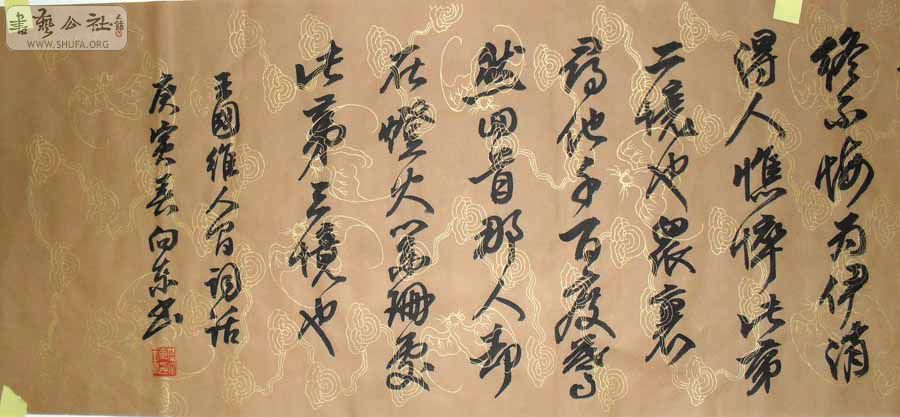 終不悔為伊消
得人憔悴此第
二境也衆裏
尋他千百度驀
然回首那人却
在燈火闌珊處
此第三境也
王國維人間詞話
庚寅春向東書
書藝公社
WWW.SHUFA.ORG